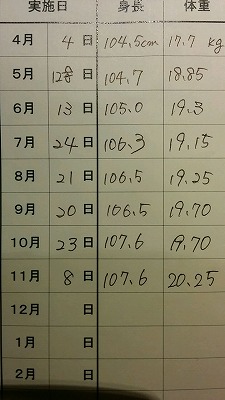 実施日 身長 体重
4月 4日 104.5cm 17.7kg
5月 日 104.7 18.85
6月 13日 105.0 19.3
7月 24日 106.3 19.15
8月 21日 106.5 19.25
9月 20日 106.5 19.70
10月 23日 107.6 19.70
11月 8日 107.6 20.25
12月 日
1月 日
2月 日